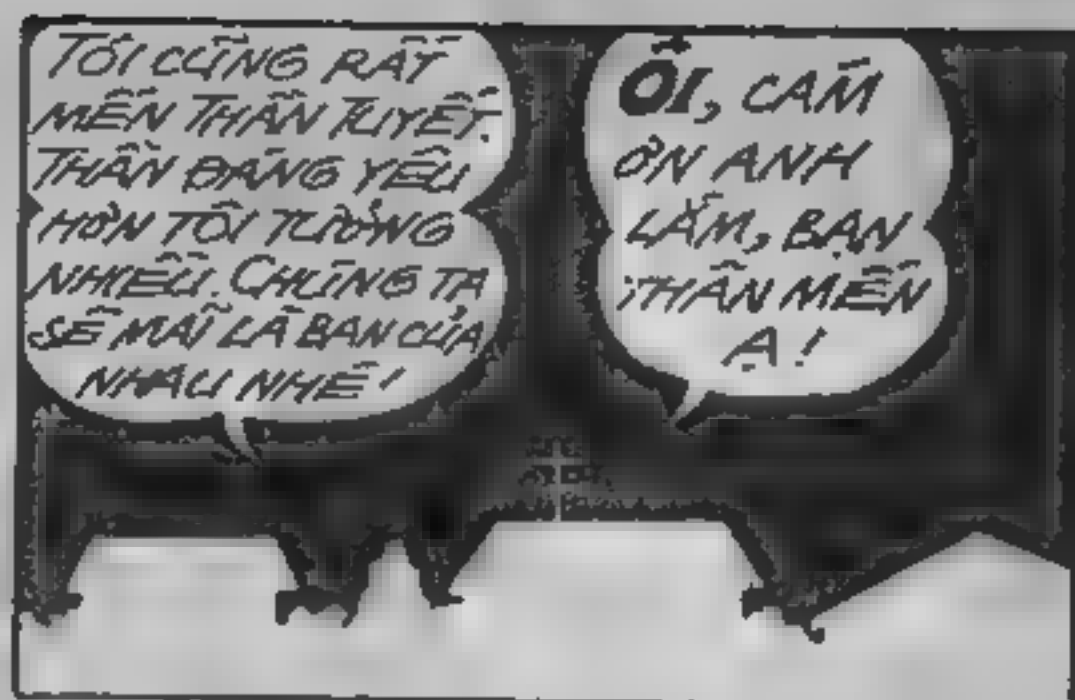 TÔI CŨNG RẤT
MẾN THẦN TUYẾT.
THẦN ĐÁNG YÊU
HƠN TÔI TƯỞNG
NHIỀU. CHÚNG TA
SẼ MÃI LÀ BẠN CỦA
NHAU NHÉ!
ÔI, CÁM
ƠN ANH
LẮM, BẠN
THÂN MẾN
Ạ!